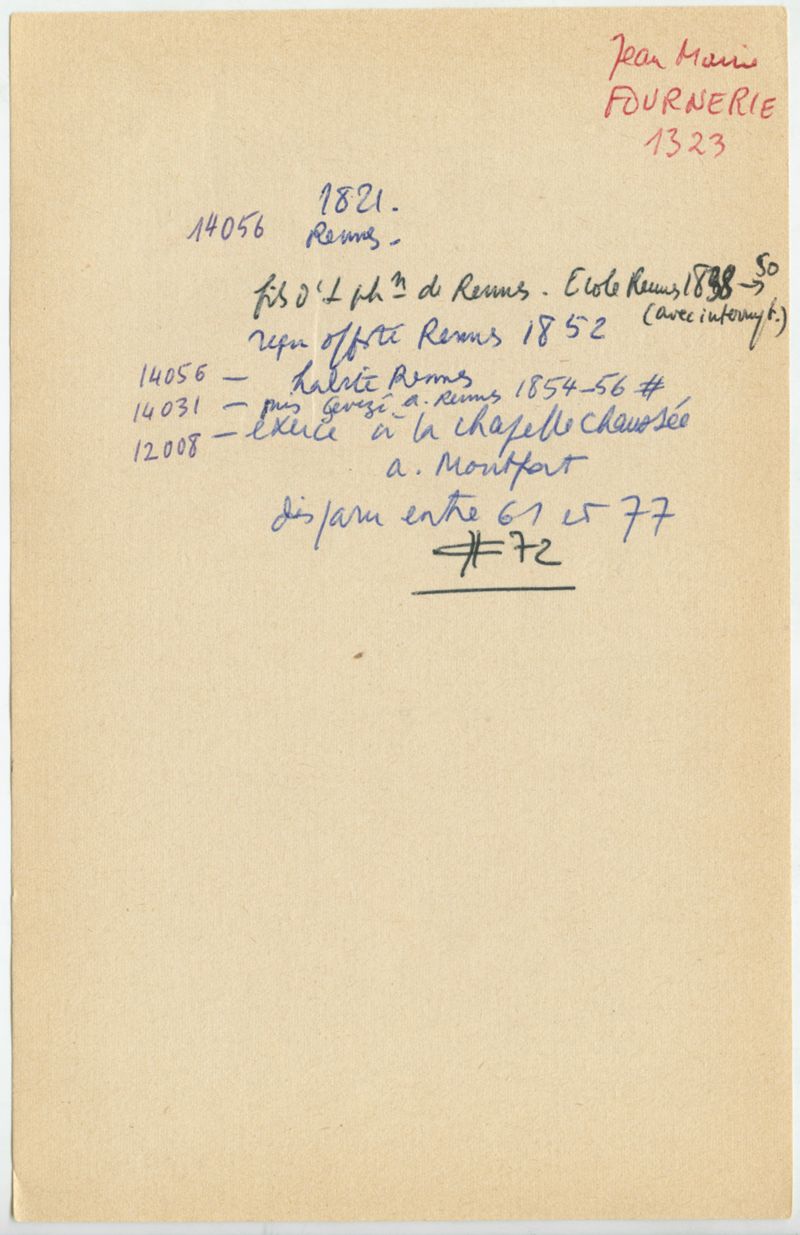 Jean Marie
FOURNERIE
1323
1821.
14056 Rennes.
fils d'1 phn de Rennes. Ecole Rennes 1838 → 50
(avec interrupt.)
reçu offté Rennes 1852
14056 — habite Rennes
14031 — puis Gevezé a. Rennes 1854-56 #
12008 — exerce à la chapelle chaussée
a. Montfort
disparu entre 61 et 77
# 72